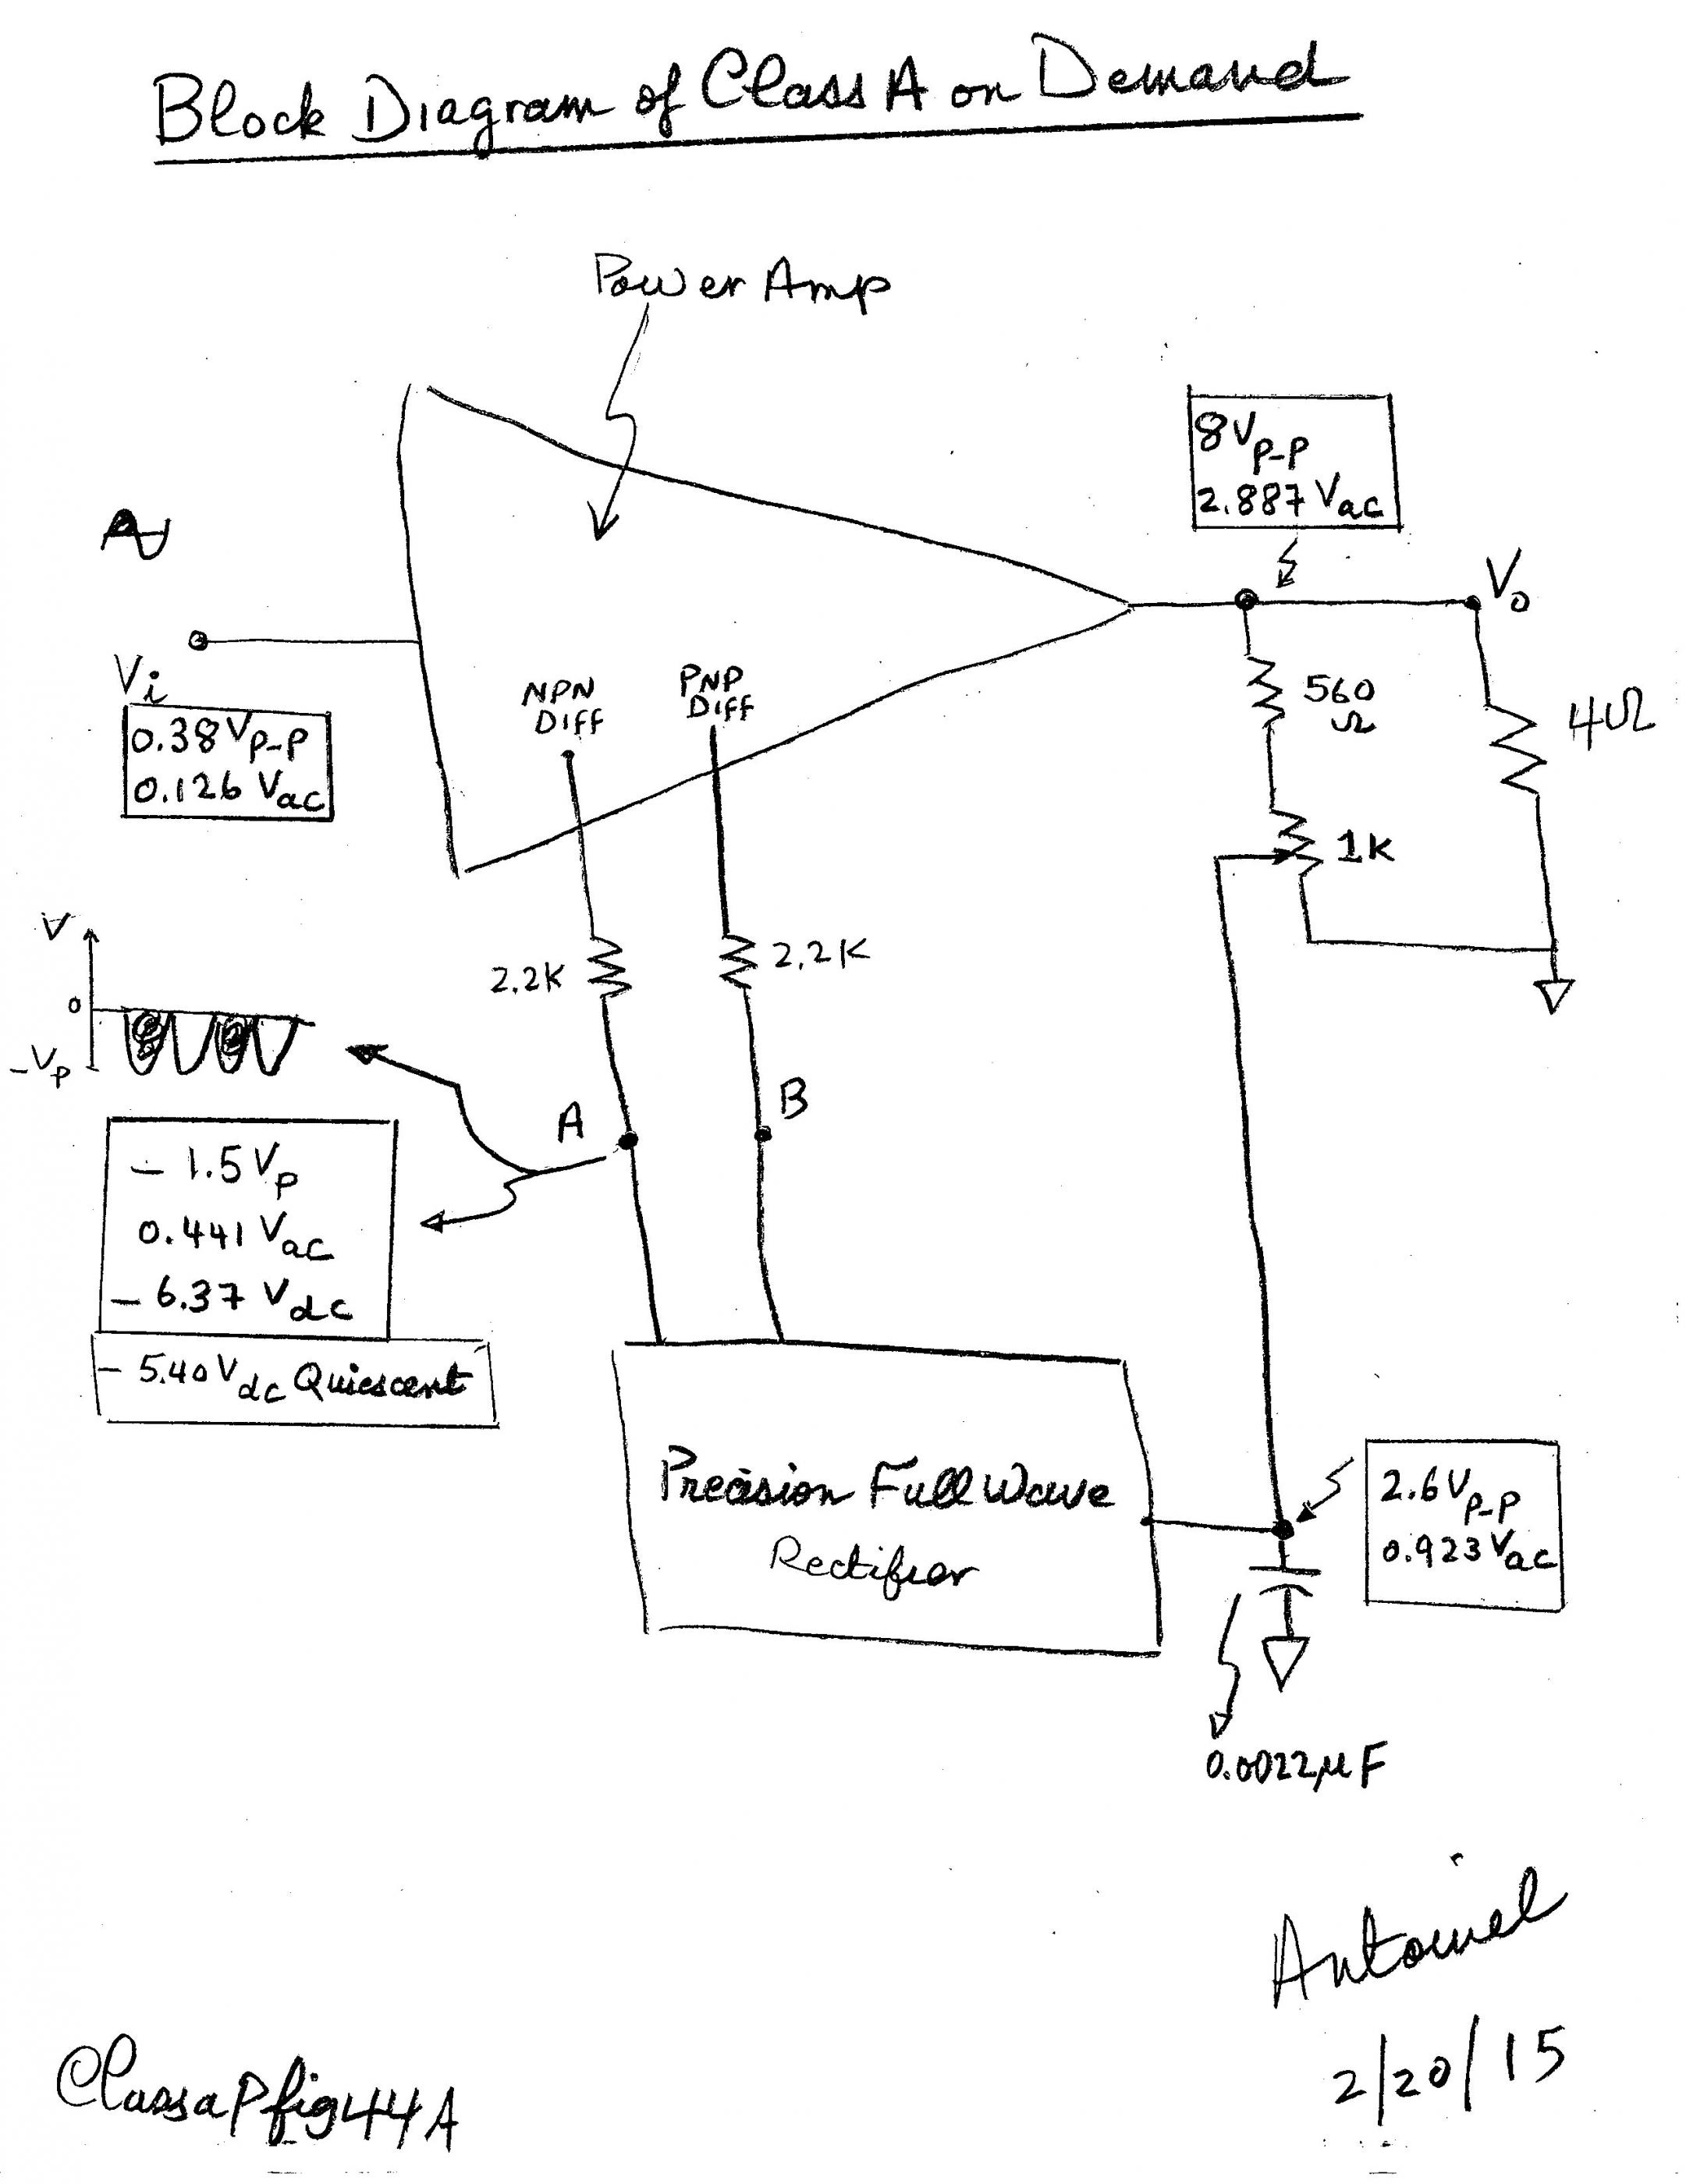 Block Diagram of Class A on Demand
Power Amp
8 Vp-p
2.887 Vac
Vo
Vi
0.38 Vp-p
0.126 Vac
NPN
DIFF
PNP
DIFF
560
Ω
4Ω
1K
2.2K
2.2K
V
0
-Vp
A
B
- 1.5 Vp
0.441 Vac
- 6.37 Vdc
- 5.40 Vdc Quiescent
Precision Full Wave
Rectifier
2.6 Vp-p
0.923 Vac
0.0022µF
2/20/15
ClassaPfig44A